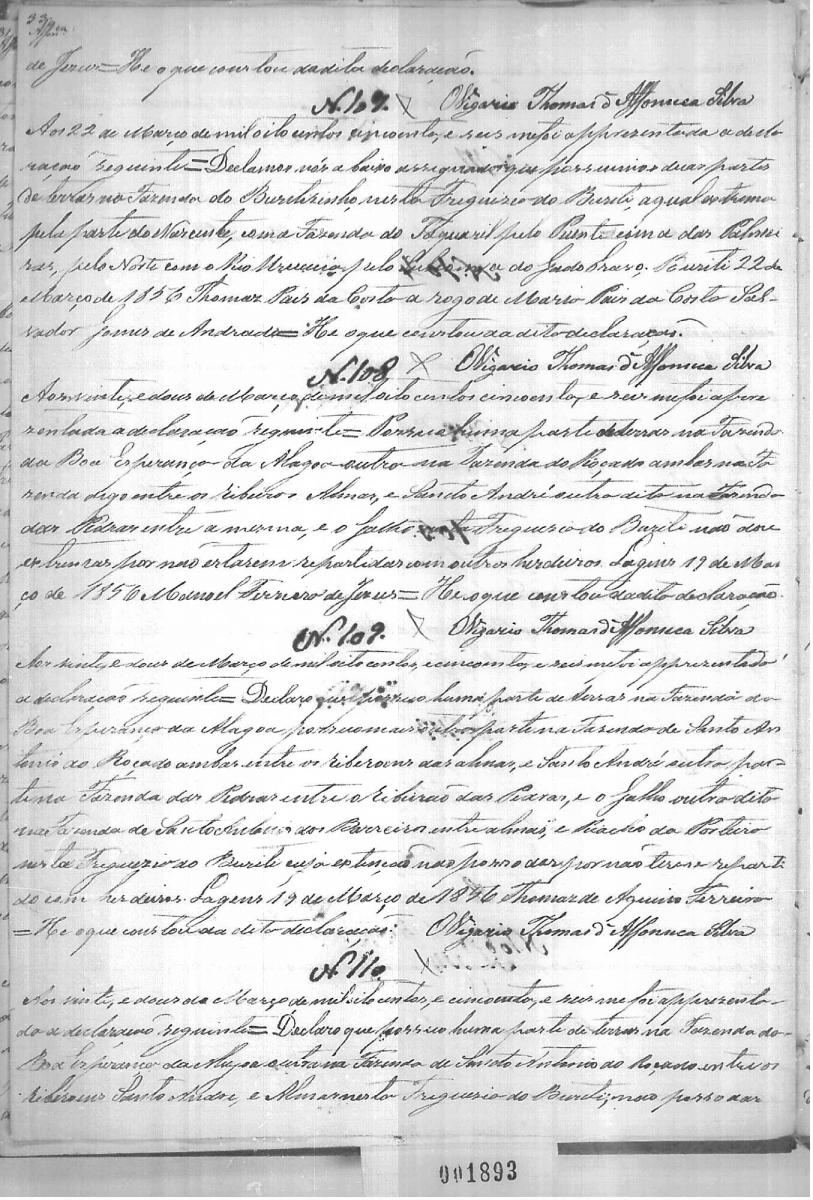 33
de Jezus = He o que constou da dita declaração.
N. 107. O Vigario Thomas d'Affonseca Silva
Aos 22 de Março de mil oito centos cincoenta, e seis me foi apprezentada a decla-
ração seguinte = Declamos nós abaixo assignados que possuimos duas partes
de terras na Fazenda do Buritizinho, nesta Freguezia do Buriti, a qual extrema
pela parte do Nascente, com a Fazenda do Taquaril pelo Puente cima das Palmei-
ras, pelo Norte com o Rio Urucuia, pelo cima do Gado bravo, Buriti 22 de
Março de 1856 Thomaz Pais da Costa a rogo de Mario Pais da Costa Sal-
vador Gomes de Andrade = He o que constou da dita declaração.
N. 108 O Vigario Thomas d'Affonseca Silva
Aos vinte, e dous de Março de mil oito centos cincoenta, e seis me foi apre-
zentada a declaração seguinte = Possuo huma parte de terras na Fazenda
da Boa Esperança da Alagoa outra na Fazenda do Roçado ambas na Fa-
zenda digo entre os ribeiros Almas, e Santo André outra dita na Fazenda
das Pedras entre a mesma, e o Galho Freguezia do Buriti não dou
extremas por não estarem repartidas com outros herdeiros. Lagens 19 de Mar-
ço de 1856 Manoel Ferreira de Jezus = He o que constou da dita declaração.
N. 109. O Vigario Thomas d'Affonseca Silva
Aos vinte, e dous de Março de mil oito centos, e cincoenta, e seis me foi apprezentada
a declaração seguinte = Declaro que possuo huma parte de terras na Fazenda da
Boa Esperança da Alagoa, possuo mais outra parte na Fazenda de Santo An-
tonio do Roçado ambas entre os ribeirões das almas, e Santo André outra par-
te na Fazenda das Pedras entre o ribeirão das Pedras, e o Galho outra dita
na Fazenda de Santo Antonio dos Barreiros entre almas, e Riacho da Porteira
nesta Freguezia do Buriti cuja extenção não posso dar por não terem se reparti-
do com herdeiros. Lagens 19 de Março de 1856 Thomaz de Aquino Ferreira
= He o que constou da dita declaração. O Vigario Thomas d'Affonseca Silva
N. 110.
Aos vinte, e dous de Março de mil oito centos, e cincoenta, e seis me foi apprezenta-
da a declaração seguinte = Declaro que possuo huma parte de terras na Fazenda da
Boa Esperança da Alagoa outra na Fazenda de Santo Antonio do Roçado entre os
ribeirões Santo Andre, e Almas nesta Freguezia do Buriti, não posso dar
001893